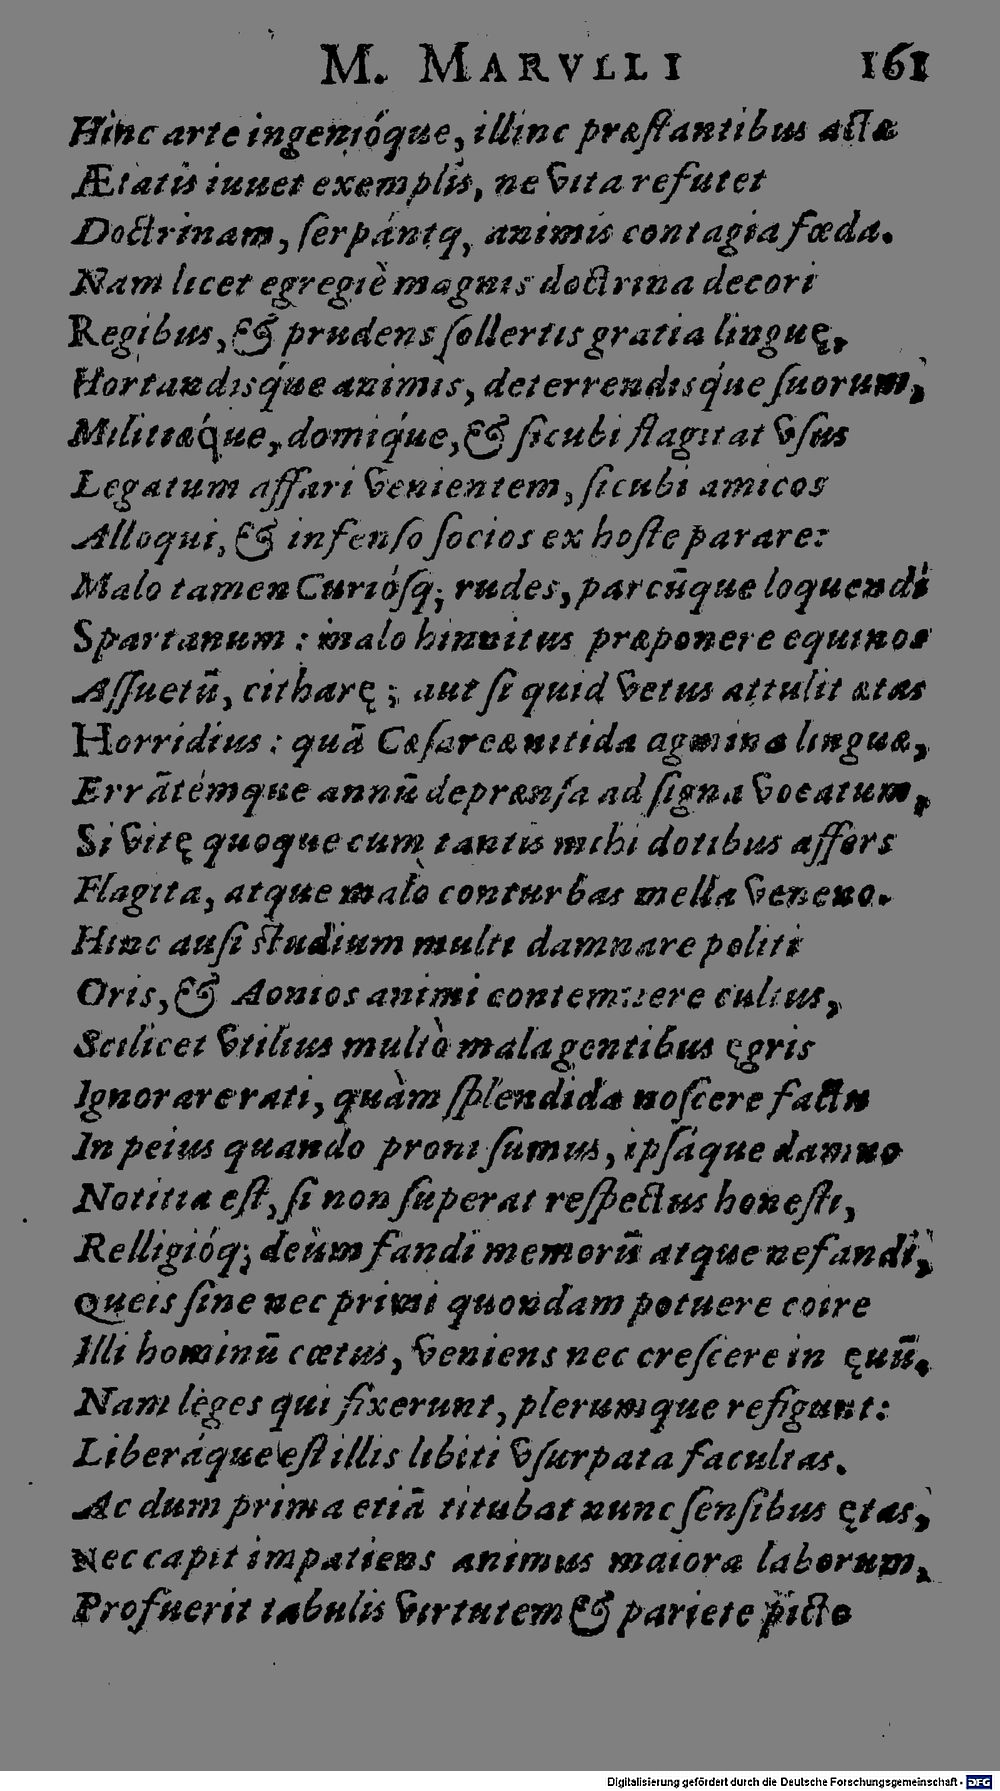 M. MARVLLI 161
Hinc arte ingenióque, illinc præſtantibus actæ
Ætatis iuuet exemplis, ne vita refutet
Doctrinam, ſerpántq, animis contagia fœda.
Nam licet egregiè magnis doctrina decori
Regibus, & prudens ſollertis gratia linguę,
Hortandisq́ue animis, deterrendisq́ue ſuorum,
Militiæq́ue, domiq́ue, & ſicubi flagitat vſus
Legatum affari venientem, ſicubi amicos
Alloqui, & infenſo ſocios ex hoſte parare:
Malo tamen Curióſq; rudes, parcūque loquendi
Spartanum : malo hinnitus præponere equinos
Aſſuetū, citharę ; aut ſi quid vetus attulit ætas
Horridius : quā Cæſareæ nitida agmina linguæ,
Errātémque annū deprænſa ad ſigna vocatum,
Si vitę quoque cum tantis mihi dotibus affers
Flagita, atque malo conturbas mella veneno.
Hinc auſi ſtudium multi damnare politi
Oris, & Aonios animi contemnere cultus,
Scilicet vtilius multò mala gentibus ęgris
Ignorare rati, quàm ſplendida noſcere factu
In peius quando proni ſumus, ipſáque damno
Notitia eſt, ſi non ſuperat reſpectus honeſti,
Relligióq; deûm fandi memorū atque nefandi,
Queis ſine nec primi quondam potuere coire
Illi hominū cœtus, veniens nec creſcere in ęuū.
Nam lèges qui fixerunt, plerumque refigunt:
Liberáque eſt illis libiti vſurpata facultas.
Ac dum prima etiā titubat nunc ſenſibus ętas,
Nec capit impatiens animus maiora laborum,
Profuerit tabulis virtutem & pariete picto
Digitalisierung gefördert durch die Deutsche Forschungsgemeinschaft - DFG